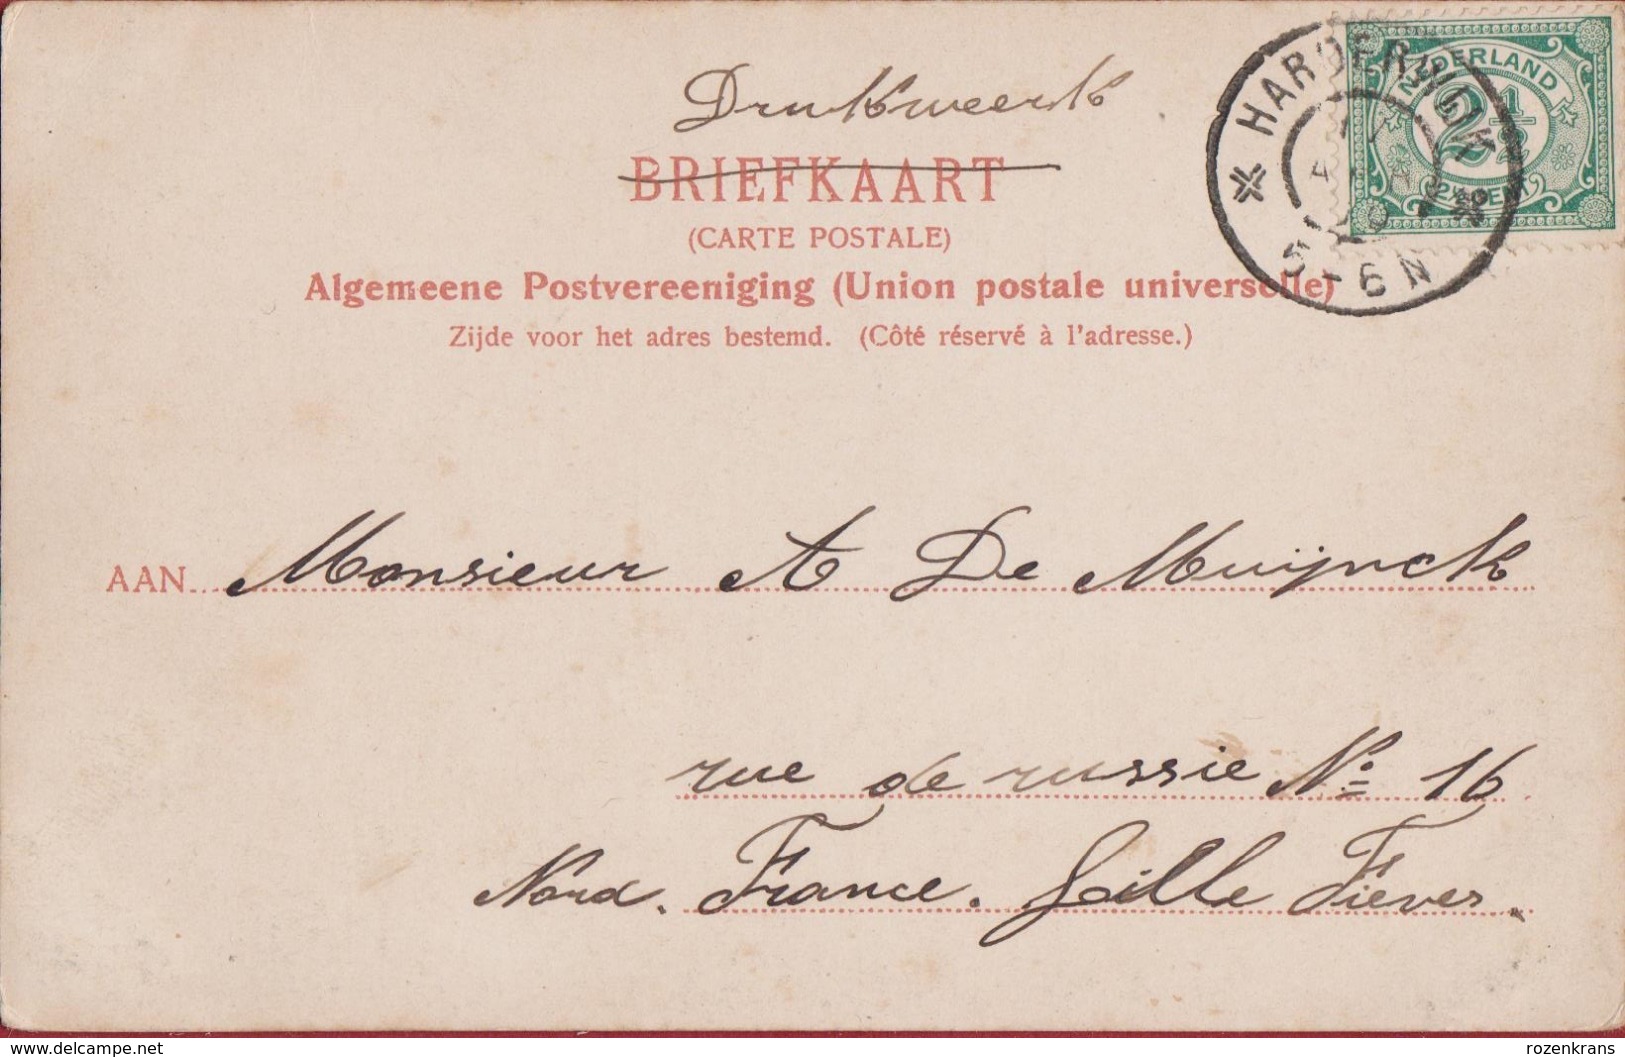 Drukweerk
BRIEFKAART
(CARTE POSTALE)
Algemeene Postvereeniging (Union postale universelle)
Zijde voor het adres bestemd. (Côté réservé à l'adresse.)
HARDERWIJK
5-6N
NEDERLAND
2½
2½ CENT
AAN Monsieur A De Muijnck
rue de russie No 16
Nord. France. Lille Fieves.
delcampe.net
rozenkrans